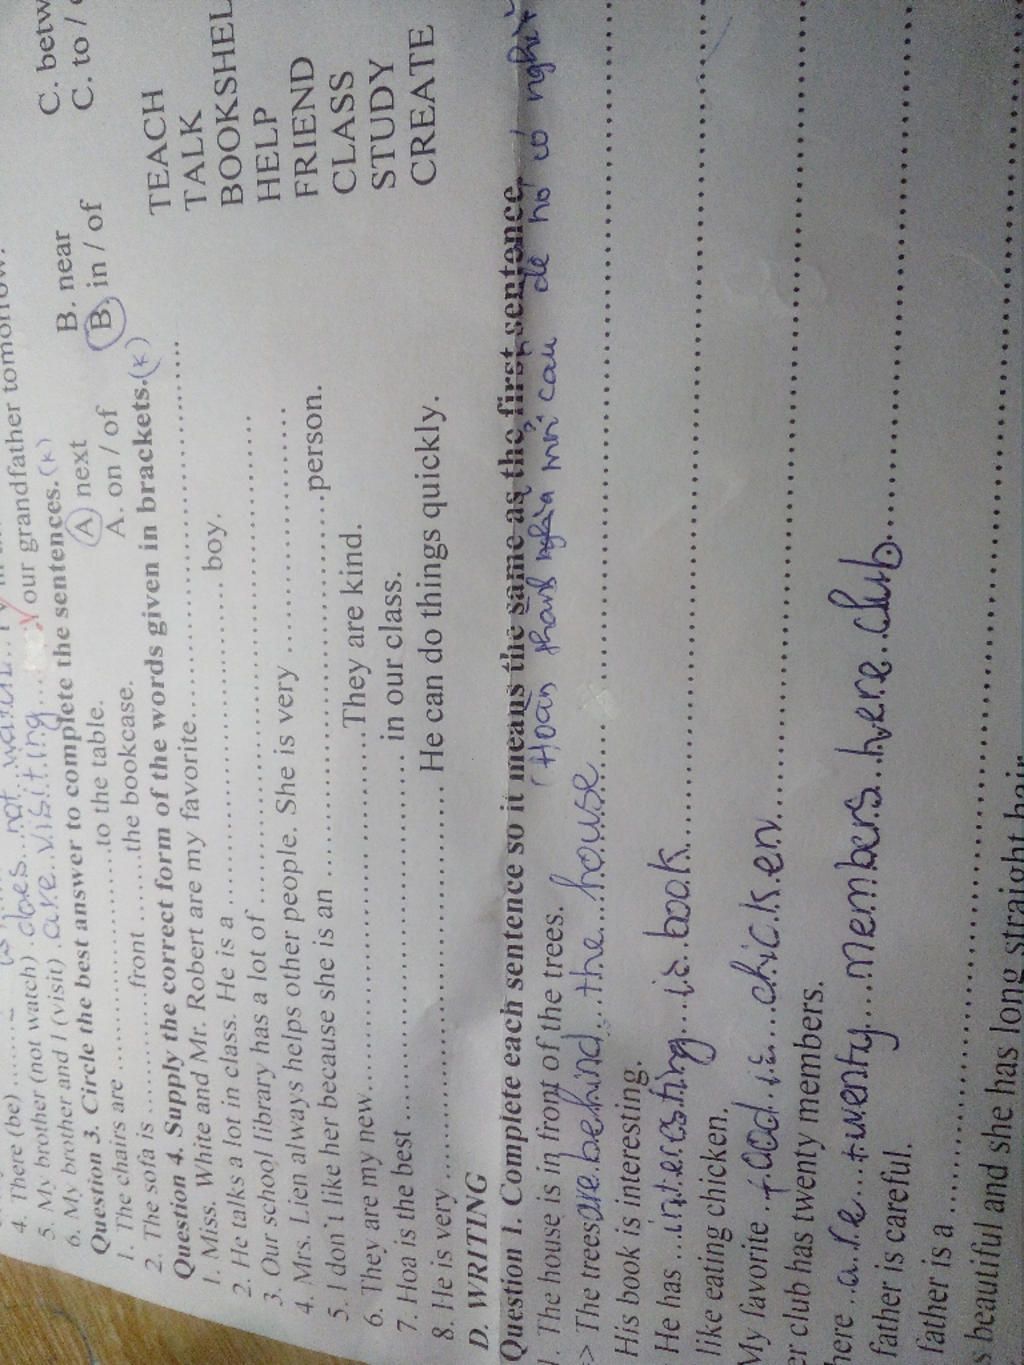 our grandfather tomorrow.
4. There (be)
5. My brother (not watch) does not watch
6. My brother and I (visit) are visiting
Question 3. Circle the best answer to complete the sentences. (k)
1. The chairs are ........ to the table. A. next B. near C. betw
2. The sofa is ........ front ........ the bookcase. A. on / of B. in / of C. to /
Question 4. Supply the correct form of the words given in brackets. (k)
1. Miss. White and Mr. Robert are my favorite........ TEACH
2. He talks a lot in class. He is a ........ boy. TALK
3. Our school library has a lot of ........ BOOKSHEL
4. Mrs. Lien always helps other people. She is very ........ HELP
5. I don't like her because she is an ........ person. FRIEND
6. They are my new........ They are kind. CLASS
7. Hoa is the best ........ in our class. STUDY
8. He is very ........ He can do things quickly. CREATE
D. WRITING
Question 1. Complete each sentence so it means the same as the first sentence.
(Hoàn thành mỗi câu để nó có nghĩa
1. The house is in front of the trees.
=> The trees are behind the house
His book is interesting.
He has interesting is book
like eating chicken.
My favorite food is chicken
er club has twenty members.
here are twenty members here club
father is careful.
father is a ........
s beautiful and she has long straight hair